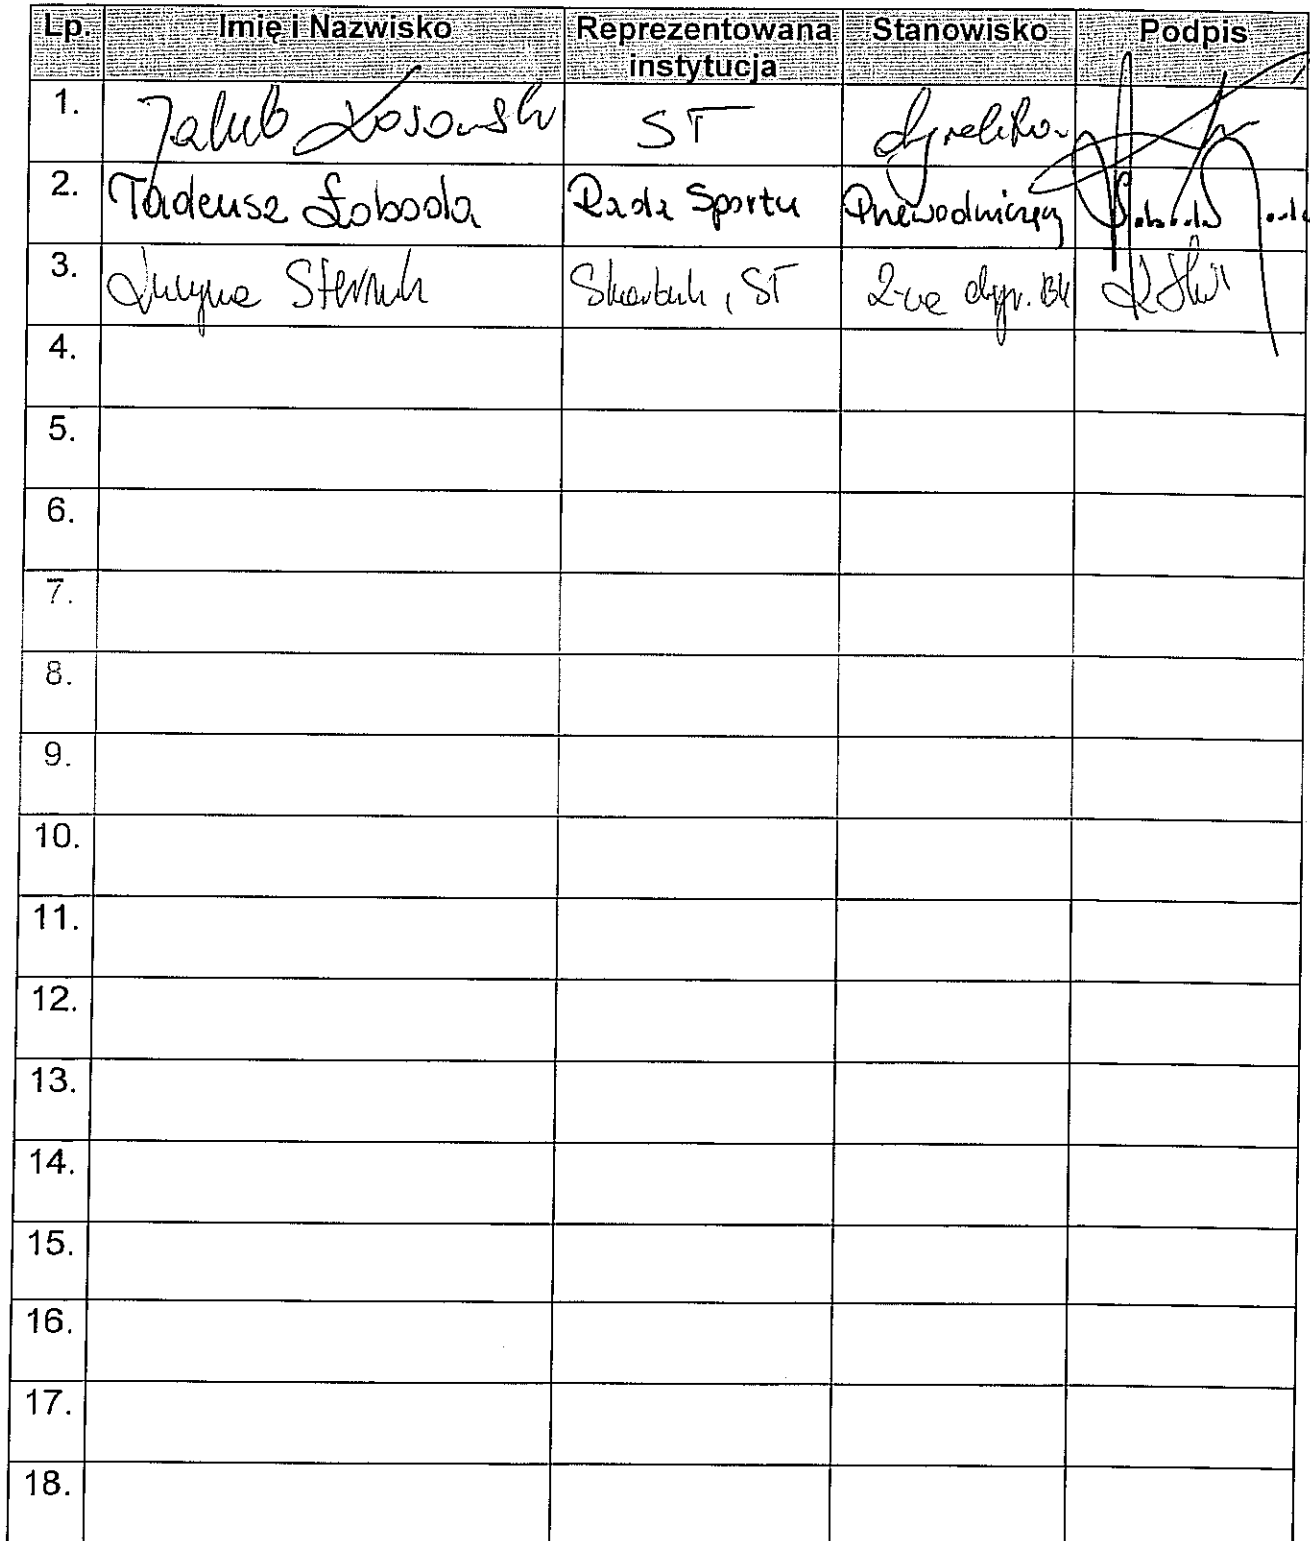 Lp. Imię i Nazwisko Reprezentowana instytucja Stanowisko Podpis
1. Jakub Kosowski ST dyrektor
2. Tadeusz Łoboda Rada Sportu Przewodniczący
3. Lucyna Sternik Skarbnik, ST Z-ca dyr.
4.
5.
6.
7.
8.
9.
10.
11.
12.
13.
14.
15.
16.
17.
18.